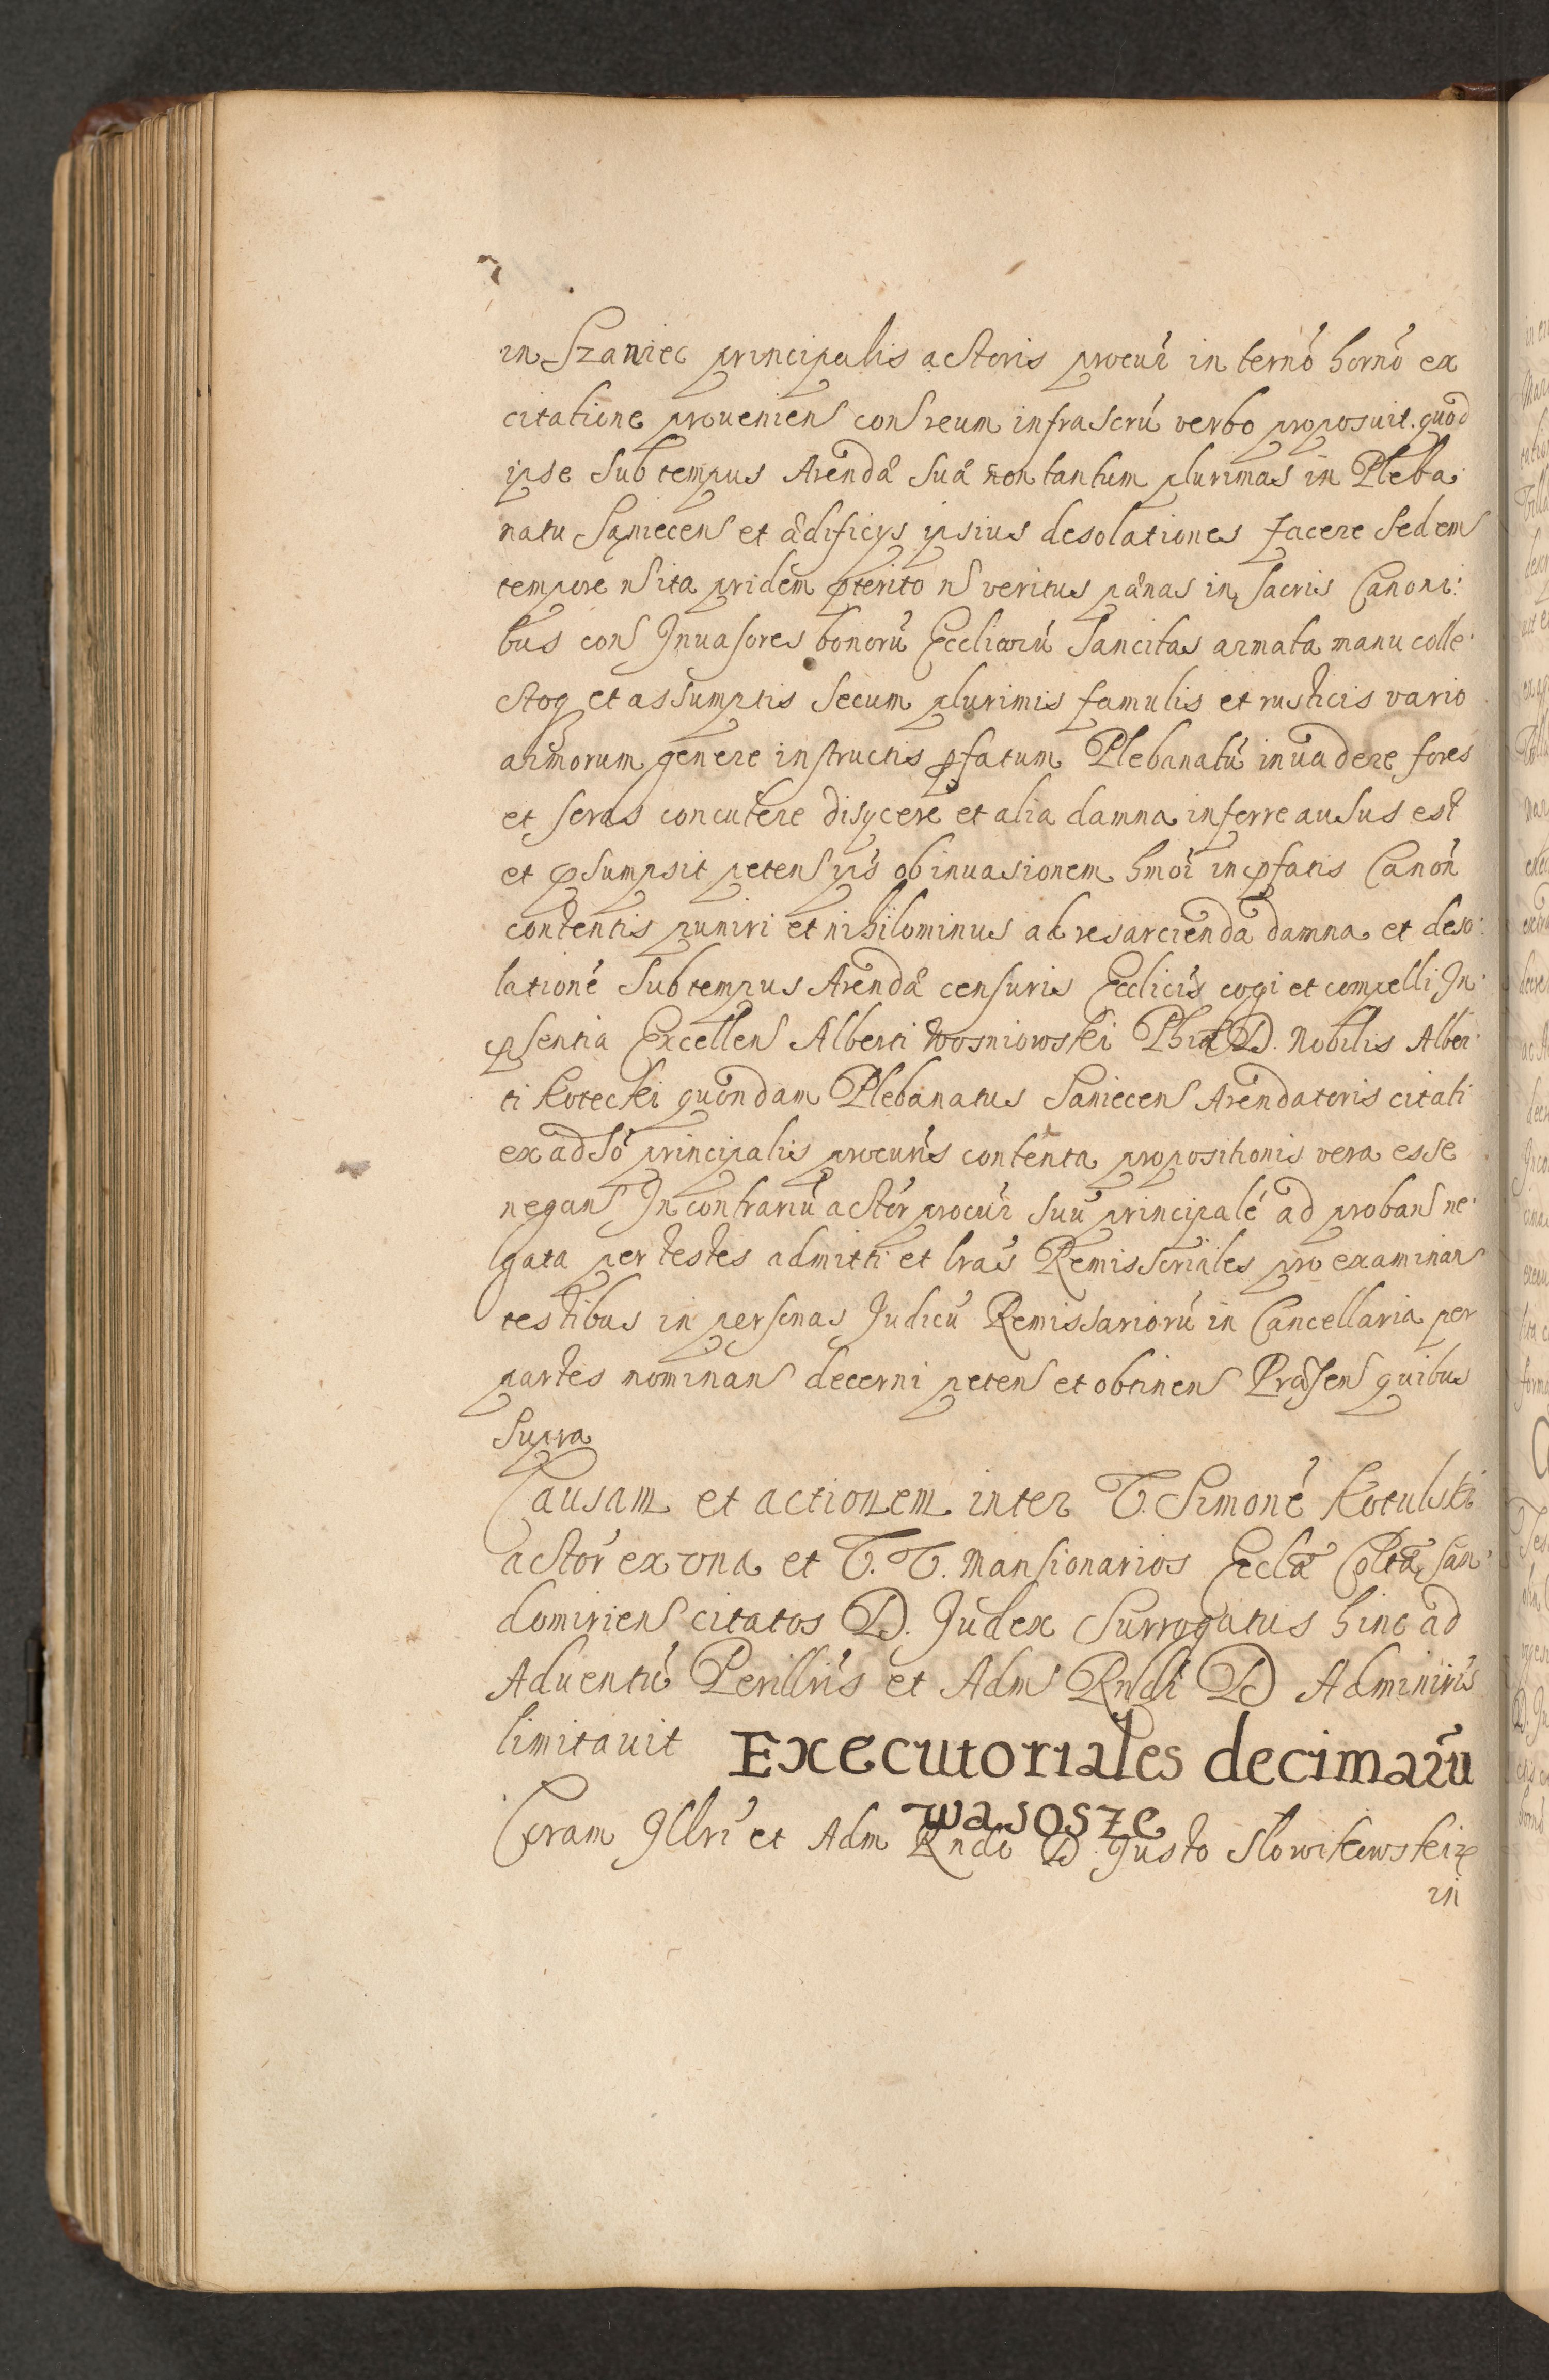 in Szaniec principalis actoris procur̃ in ternó hornó ex
citatione proueniens cons reum infrascrú verbo proposuit. quod
ipse Sub tempus Arendæ Suæ non tantum plurimas in Pleba
natu Saniecens et ædificijs ipsius desolationes facere Sed em
tempore ns ita pridem pterito ns veritus pænas in Sacris Canoni:
bus cons Inuasores bonorũ Eccliarũ Sancitas armata manu colle:
ctoq et assumptis Secum plurimis famulis et rusticis vario
armorum genere instructis pfatum Plebanatũ inuadere fores
et seras concutere disycere et alia damna inferre ausus est
et psumpsit petens pís ob inuasionem hmoi in pfatis Canon
contentis puniri et nihilominus ad resarcienda damna et deso:
lationé Sub tempus Arendæ censuris Ecclicis cogi et compelli In:
psentia Excellens Alberti Wosniowski Phiæ D. Nobilis Alber:
ti Kotecki quondam Plebanatus Saniecens Arendatoris citati
ex adsó principalis procuris contenta propositionis vera esse
negans In contrariũ actor procur̃ suũ principalé ad probans ne:
gata per testes admitti et lras Remissoriales pro examinans
testibus in personas Judicũ Remissariorũ in Cancellaria per
partes nominans decerni petens et obtinens Præsens quibus
Supra
Causam et actionem inter V. Simoné Kotulski
actor ex una et V. V. Mansionarios Ecclæ Coltæ San:
domiriens citatos D. Judex Surrogatus hinc ad
Aduentũ Perillris et Adm Rndi D Administris
limitauit Executoriales decimarũ
wasosze
Coram Illri et Adm Rndo D. Justo Slowikowski
in